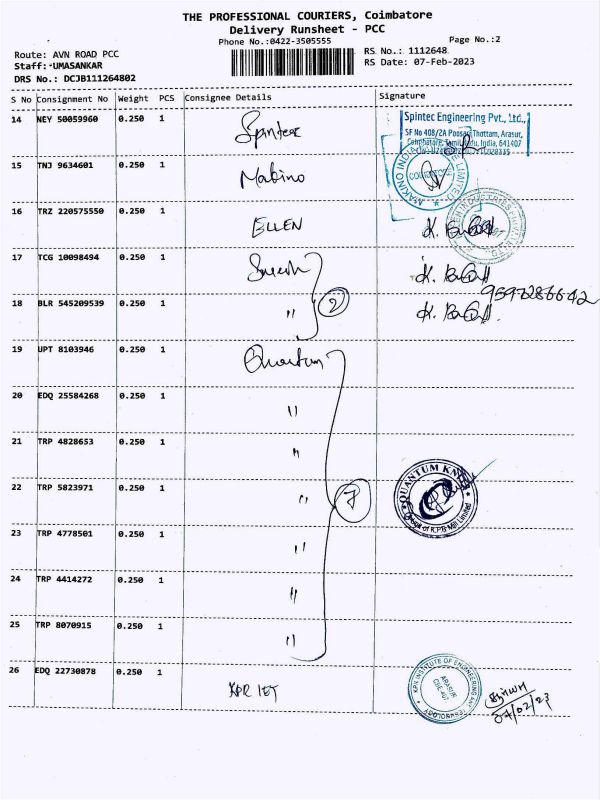 THE PROFESSIONAL COURIERS, Coimbatore
Delivery Runsheet - PCC
Phone No.:0422-3505555
Page No.:2
Route: AVN ROAD PCC
RS No.: 1112648
Staff: UMASANKAR
RS Date: 07-Feb-2023
DRS No.: DCJB111264802
S No Consignment No Weight PCS Consignee Details Signature
14 NEY 50059960 0.250 1 Spintec
Spintec Engineering Pvt., Ltd.,
SF No 408/2A Poosari Thottam, Arasur,
Coimbatore, Tamil Nadu, India, 641407
15 TNJ 9634601 0.250 1 Makino
16 TRZ 220575550 0.250 1 ELLEN
17 TCG 10098494 0.250 1 Suresh
9597286642
18 BLR 545209539 0.250 1 " 2
19 UPT 8103946 0.250 1 Quantum
20 EDQ 25584268 0.250 1 "
21 TRP 4828653 0.250 1 "
22 TRP 5823971 0.250 1 " 7
QUANTUM KNITS
Group of K.P.R Mill Limited
23 TRP 4778501 0.250 1 "
24 TRP 4414272 0.250 1 "
25 TRP 8070915 0.250 1 "
26 EDQ 22730878 0.250 1 KPR IET
KPR INSTITUTE OF ENGINEERING AND TECHNOLOGY
ARASUR
07/02/23